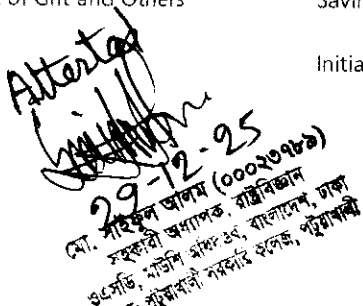 of Gift and Others
Savin
Initia
Attested
29-12-25
মো. সাইফুল আলম (০০০২৩৭৮৯)
সহকারী অধ্যাপক, রাষ্ট্রবিজ্ঞান
ওএসডি, মাউশি অধিদপ্তর, বাংলাদেশ, ঢাকা
পটুয়াখালী সরকারি কলেজ, পটুয়াখালী